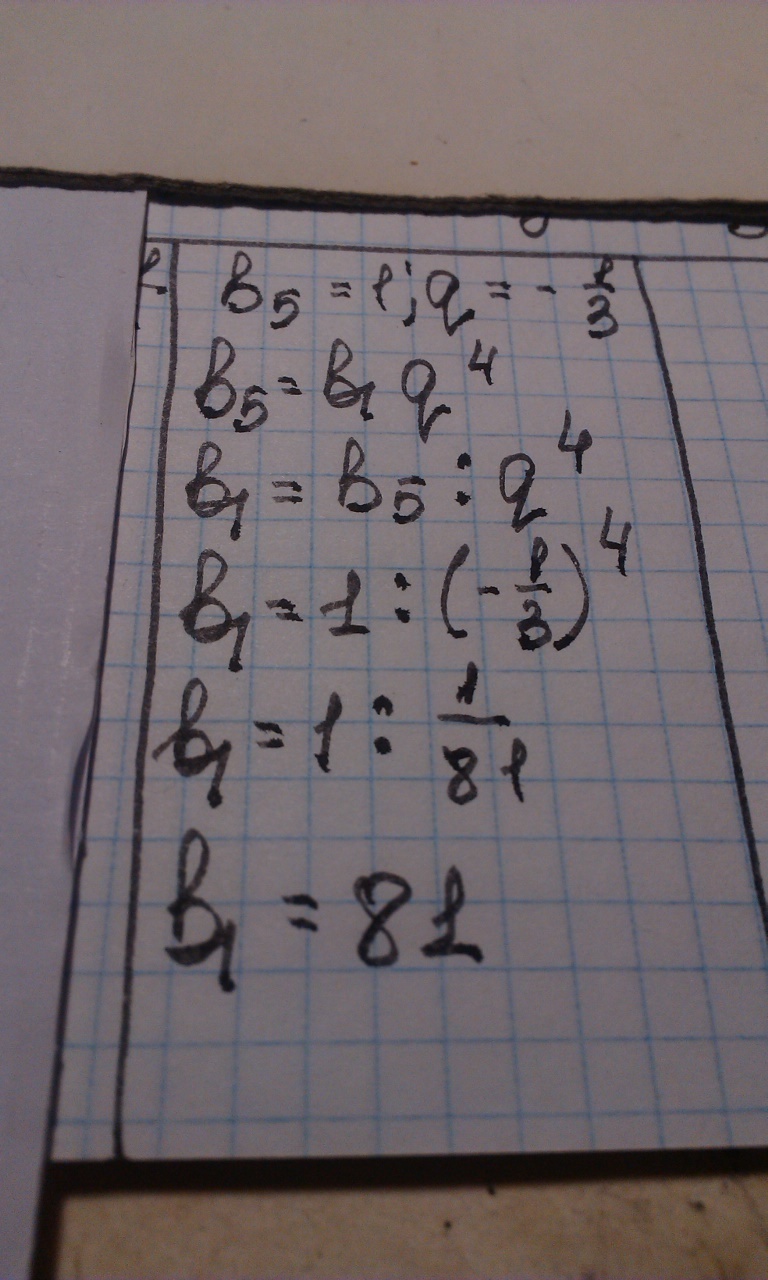 b₅ = 1; q = - 1/3
b₅ = b₁ q⁴
b₁ = b₅ : q⁴
b₁ = 1 : (- 1/3)⁴
b₁ = 1 : 1/81
b₁ = 81